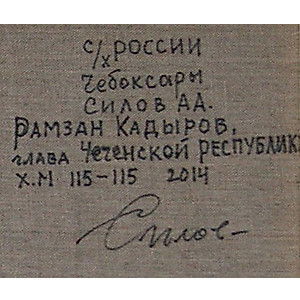 с/х РОССИИ
Чебоксары
СИЛОВ А.А.
РАМЗАН КАДЫРОВ,
глава ЧЕЧЕНСКОЙ РЕСПУБЛИКИ
Х.М 115-115 2014
Силов